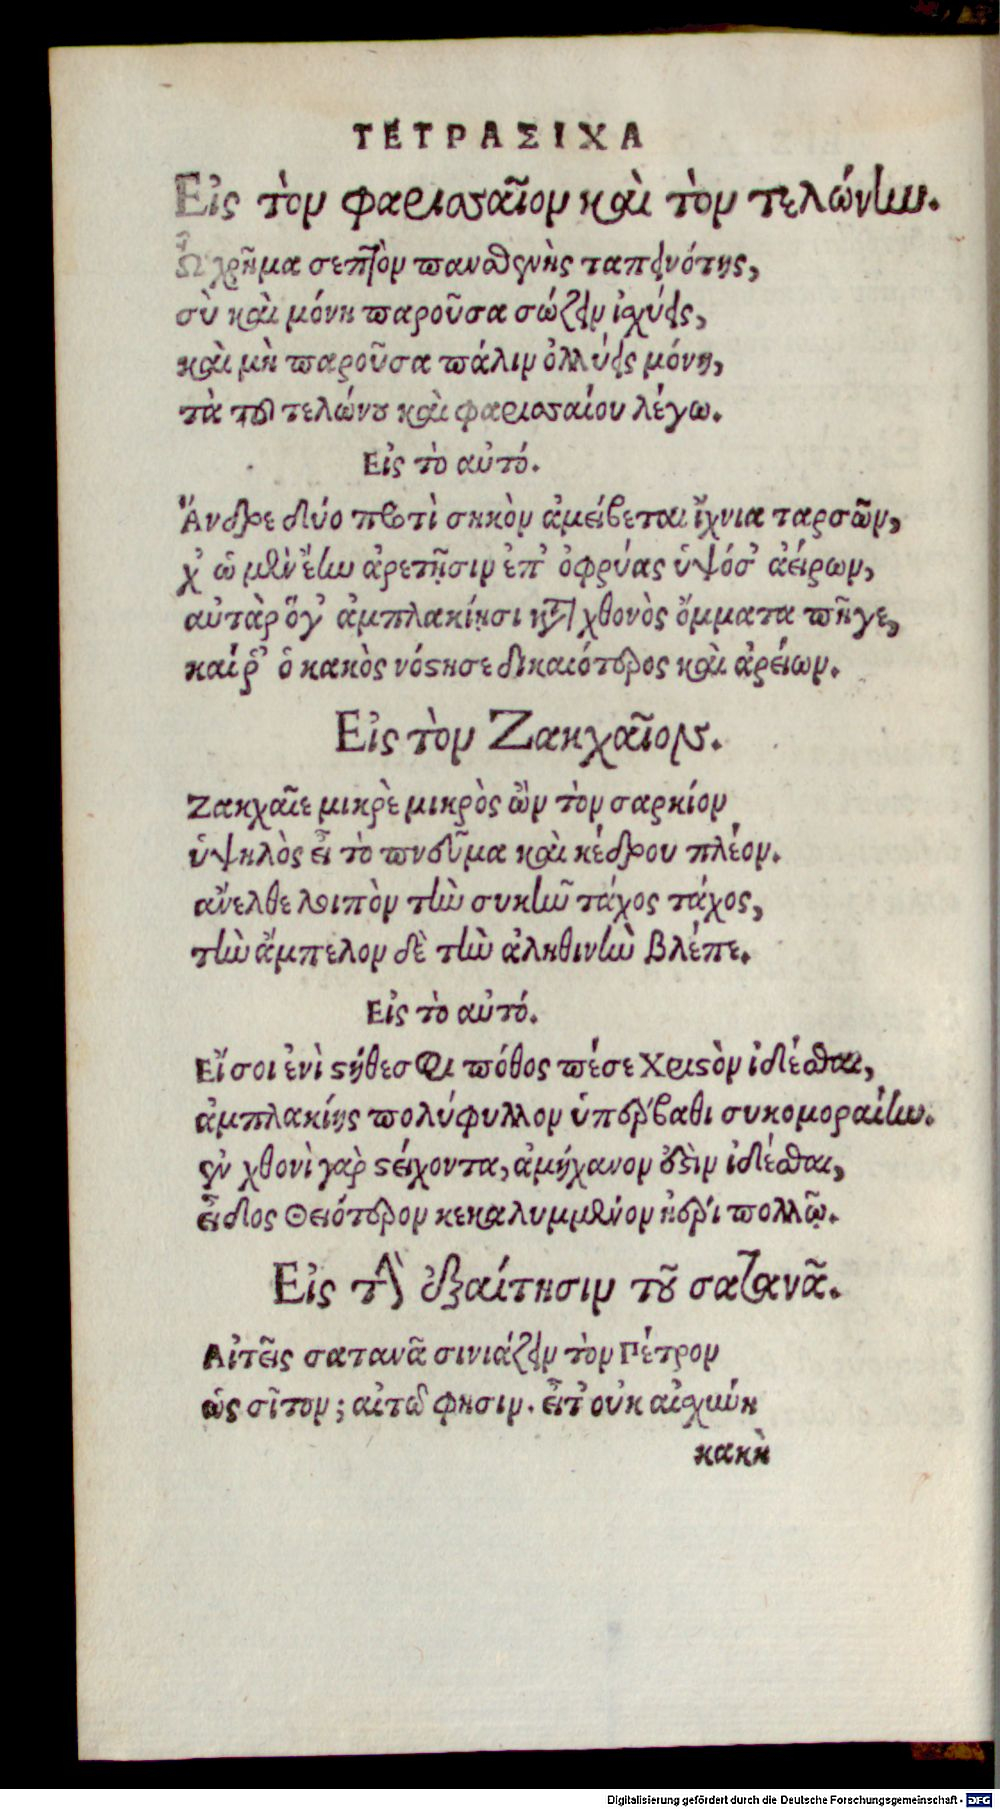 ΤΕΤΡΑΣΙΧΑ
Εἰς τὸν φαρισαῖον καὶ τὸν τελώνην.
Ὦ χρῆμα σεπτὸν πανσθενὴς ταπεινότης,
σὺ καὶ μόνη παροῦσα σώζειν ἰσχύεις,
καὶ μὴ παροῦσα πάλιν ὀλλύεις μόνη,
τὰ τοῦ τελώνου καὶ φαρισαίου λέγω.
Εἰς τὸ αὐτό.
Ἄνδρε δύο προτὶ σηκὸν ἀμείβεται ἴχνια ταρσῶν,
χ' ὡ μὲν ἔην ἀρετῇσιν ἐπ' ὀφρύας ὑψόσ' ἀείρων,
αὐτὰρ ὅγ' ἀμπλακίῃσι κατὰ χθονὸς ὄμματα πῆγε,
καί ῥ' ὁ κακὸς νόστησε δικαιότερος καὶ ἀρείων.
Εἰς τὸν Ζακχαῖον.
Ζακχαῖε μικρὲ μικρὸς ὢν τὸν σαρκίον
ὑψηλὸς εἶ τὸ πνεῦμα καὶ κέδρου πλέον.
ἄνελθε λοιπὸν τὴν συκῆν τάχος τάχος,
τὴν ἄμπελον δὲ τὴν ἀληθινὴν βλέπε.
Εἰς τὸ αὐτό.
Εἴ σοι ἐνὶ στήθεσφι πόθος πέσε Χριστὸν ἰδέσθαι,
ἀμπλακίης πολύφυλλον ὑπέρβαθι συκομοραίην.
ἐν χθονὶ γὰρ στείχοντα, ἀμήχανον οὐδὲν ἰδέσθαι,
εἶδος Θειότερον κεκαλυμμένον ἠέρι πολλῷ.
Εἰς τὴν ἐξαίτησιν τοῦ σατανᾶ.
Αἰτεῖς σατανᾶ σινιάζειν τὸν Πέτρον
ὡς σῖτον; αἰτῶ φησιν. εἶτ' οὐκ αἰσχύνη
κακὴ
Digitalisierung gefördert durch die Deutsche Forschungsgemeinschaft - DFG